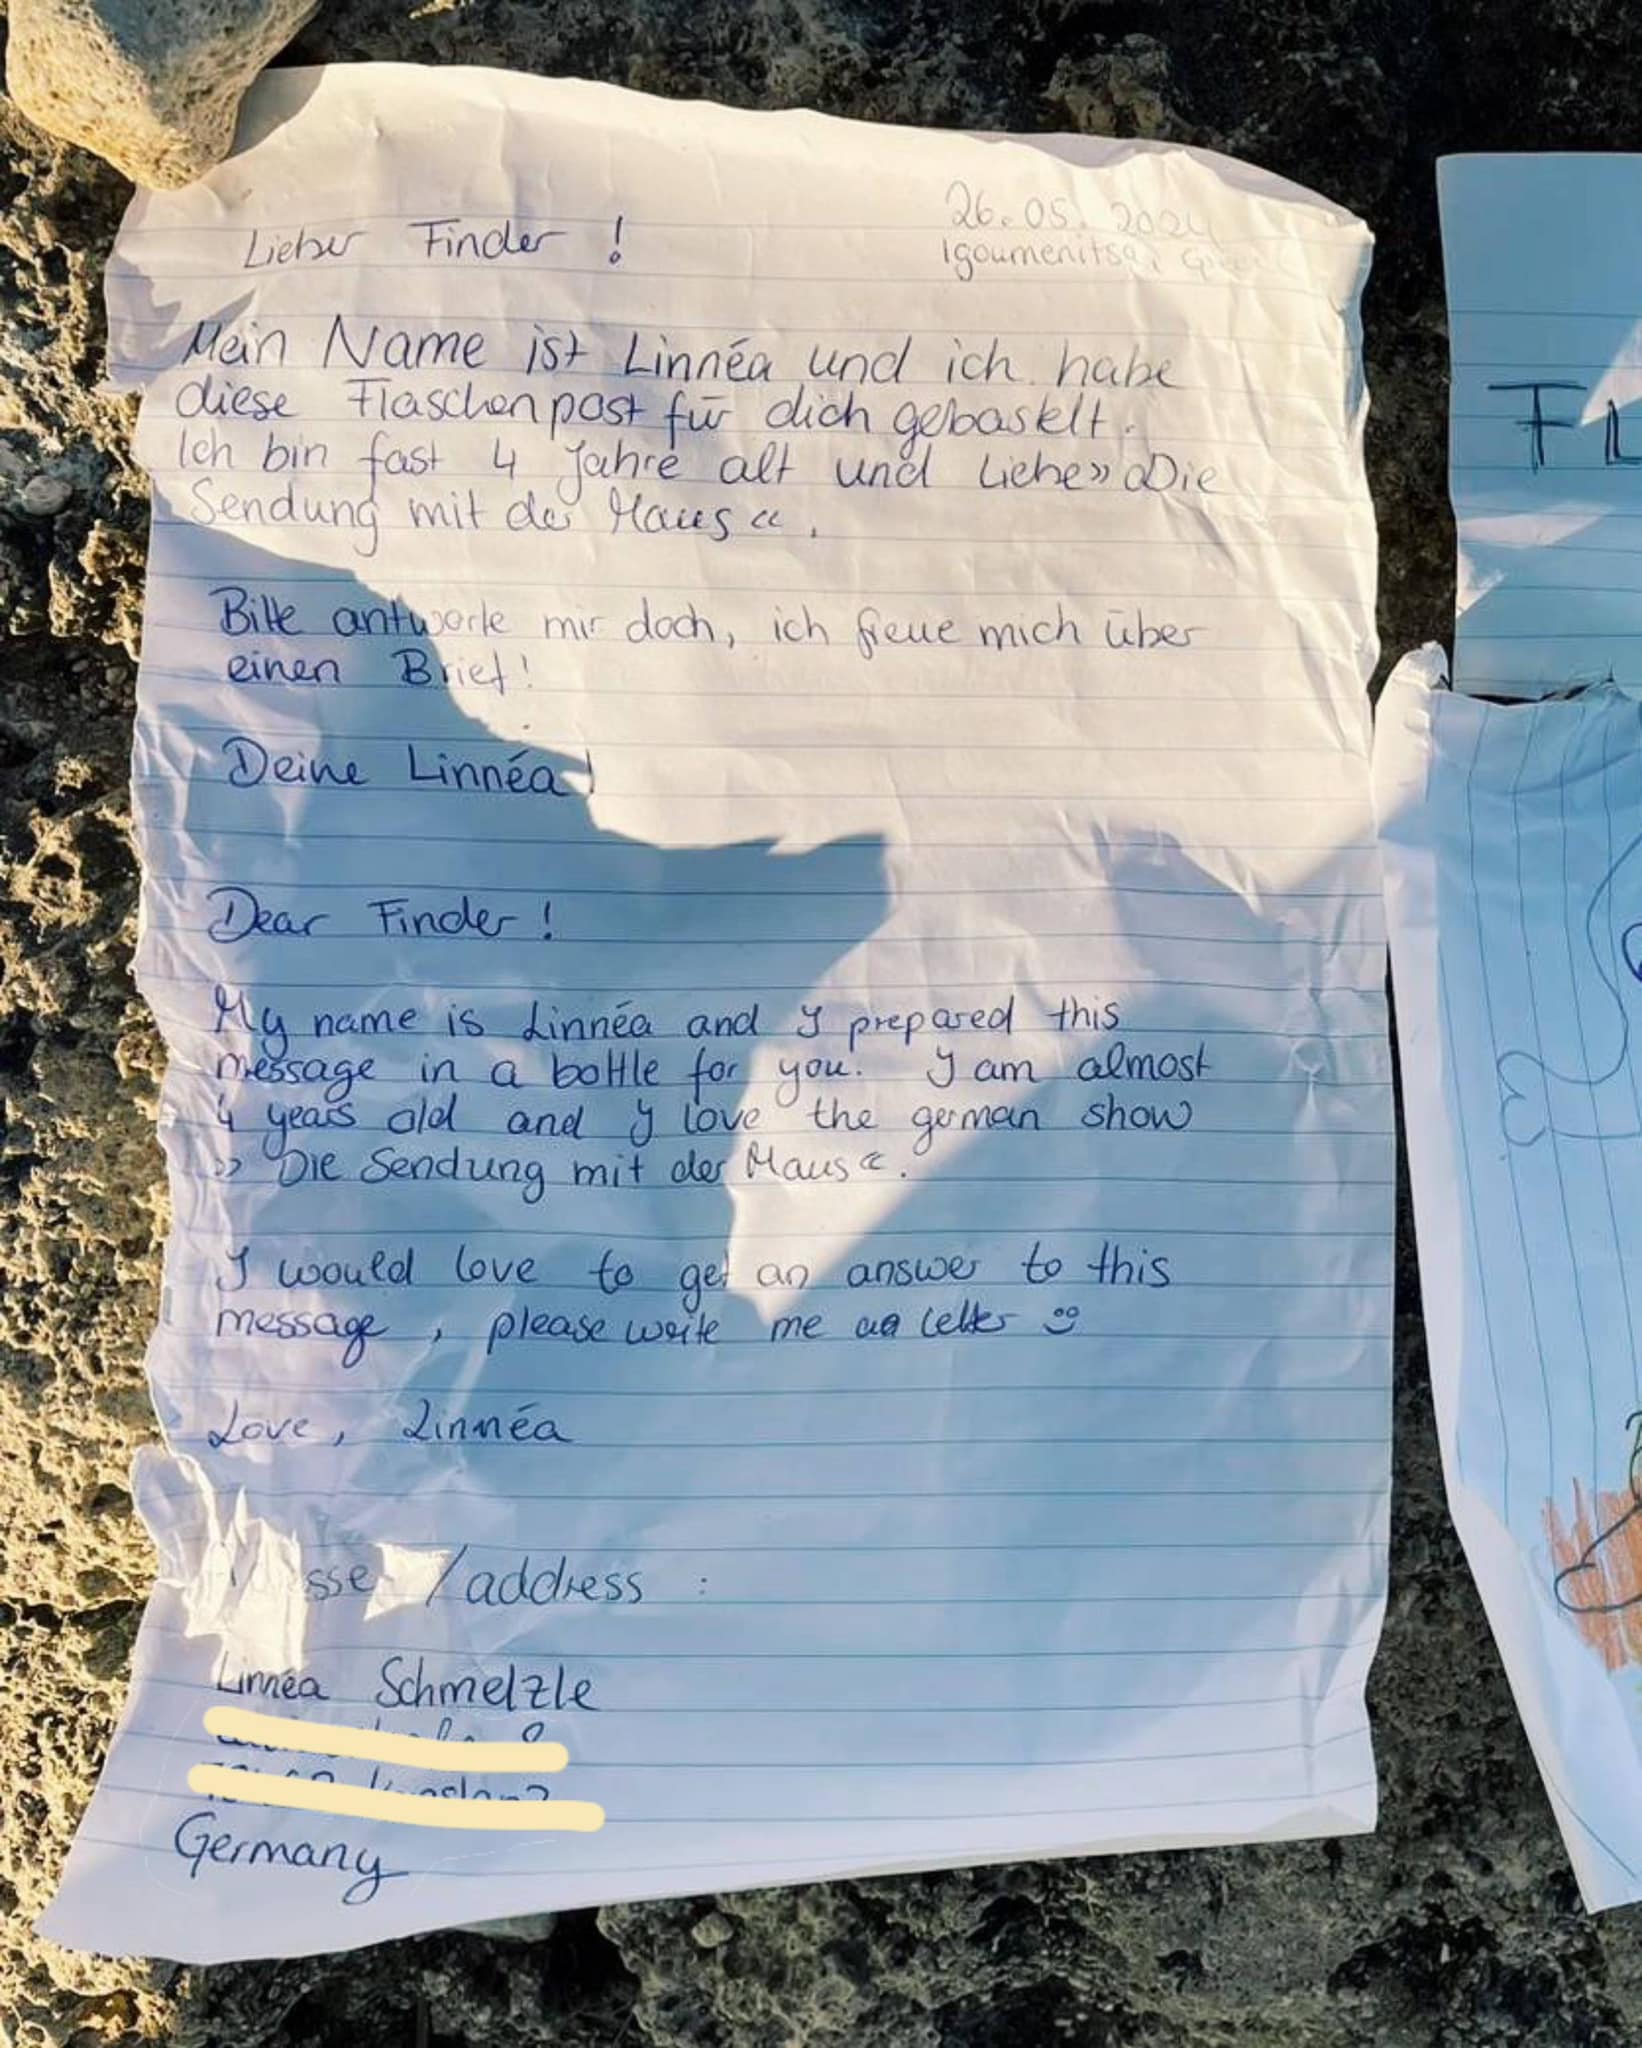 26.05.2024
Igoumenitsa,
Lieber Finder !
Mein Name ist Linnéa und ich habe
diese Flaschenpost für dich gebastelt.
Ich bin fast 4 Jahre alt und liebe »Die
Sendung mit der Maus«.
Bitte antworte mir doch, ich freue mich über
einen Brief!
Deine Linnéa!
Dear Finder !
My name is Linnéa and I prepared this
message in a bottle for you. I am almost
4 years old and I love the german show
»Die Sendung mit der Maus«.
I would love to get an answer to this
message, please write me a letter ☺
Love, Linnéa
/address :
Linnéa Schmelzle
Germany